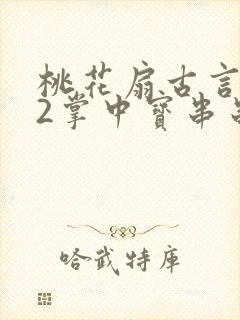 桃花扇古言
2掌中寶串
哈武特庫